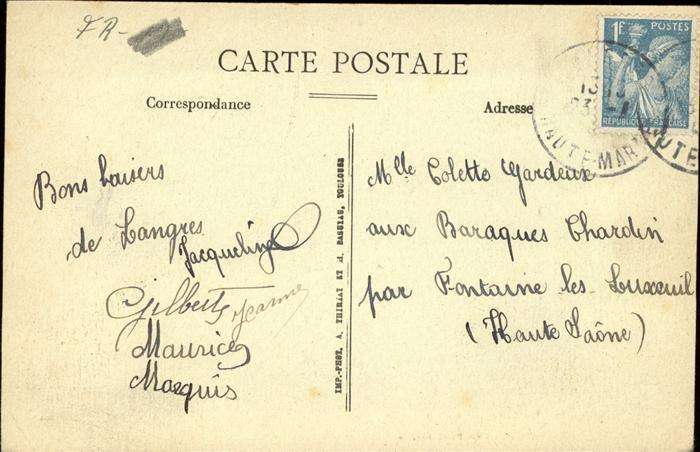 FR-
CARTE POSTALE
Correspondance
Adresse
1F POSTES
RÉPUBLIQUE FRANÇAISE
HAUTE-MAR
Bons baisers
de Langres
Jacqueline
Gilberte Jeanne
Maurice
Marquis
IMP.-PHOT. A. THIRIAT ET
TOULOUSE
Mlle Colette Gardeux
aux Baraques Chardin
par Fontaine les Luxeuil
(Haute Saône)